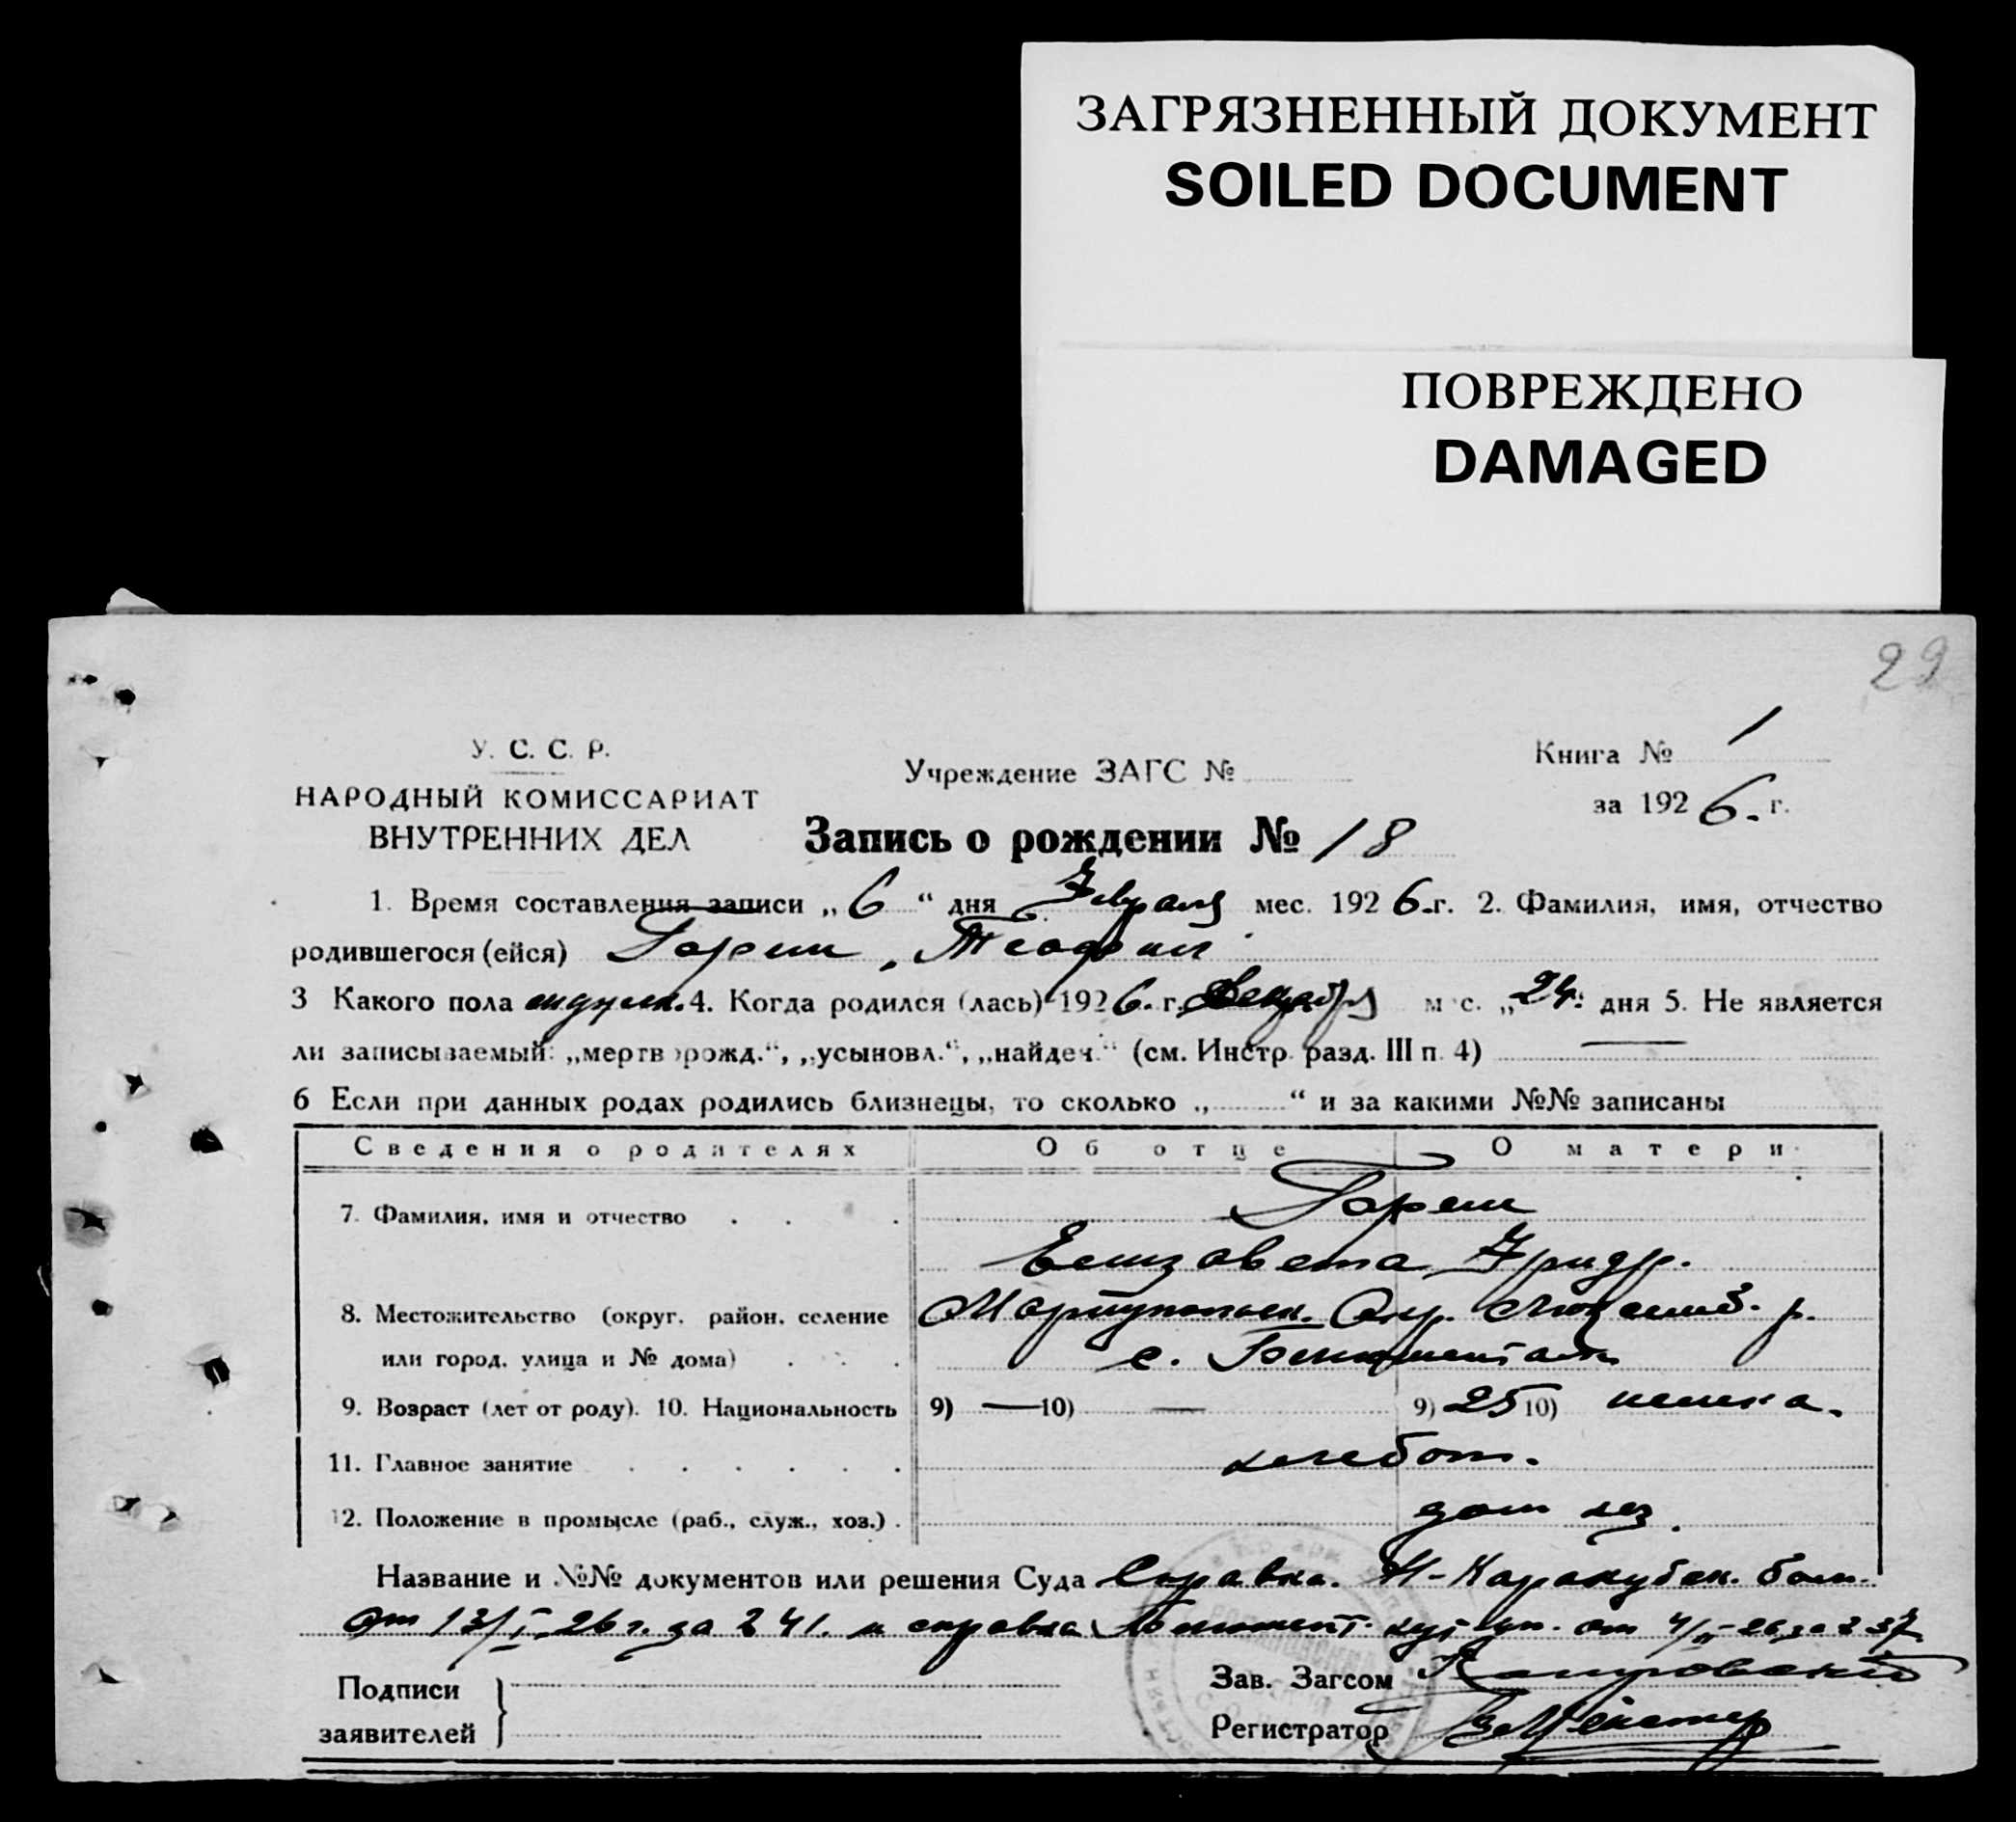 ЗАГРЯЗНЕННЫЙ ДОКУМЕНТ
SOILED DOCUMENT
ПОВРЕЖДЕНО
DAMAGED
29
У. С. С. Р.
НАРОДНЫЙ КОМИССАРИАТ
ВНУТРЕННИХ ДЕЛ
Учреждение ЗАГС №
Книга № 1
за 1926. г.
Запись о рождении № 18
1. Время составления записи „6“ дня Февраля мес. 1926.г. 2. Фамилия, имя, отчество
родившегося (ейся) Гореш, Теофил
3 Какого пола мужск. 4. Когда родился (лась) 1926. г. Декабря мес. „24“ дня 5. Не является
ли записываемый: „мертворожд.“, „усыновл.“, „найден.“ (см. Инстр. разд. III п. 4) —
6 Если при данных родах родились близнецы, то сколько „ “ и за какими №№ записаны
Сведения о родителях Об отце О матери
7. Фамилия, имя и отчество Гореш
Елизавета Фридр.
8. Местожительство (округ, район, селение Мариупольск. Окр. Люксемб. р.
или город, улица и № дома) с.
9. Возраст (лет от роду). 10. Национальность 9) — 10) — 9) 25 10) немка.
11. Главное занятие хлебоп.
12. Положение в промысле (раб., служ., хоз.) дом хоз.
Название и №№ документов или решения Суда Справка. Н-Каракубск. бол.
от 13/I-26 г. за 241. и справка от 4/II-26 за 237
Подписи
заявителей
Зав. Загсом
Регистратор